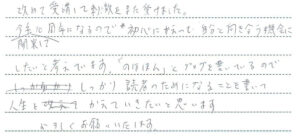 改めて受講して刺激をまた受けました。
今年に周年になるので 初心にかえって 自分と向き合う機会に
開業
したいと考えてます。「のほほん」とブログを書いているので
しっかり 読者のためになることを書いて
人生を かえていきたいと思います
よろしくお願いいたします。